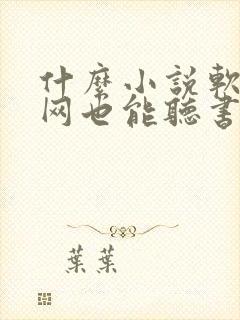 什麼小說軟
网也能聽書
葉葉